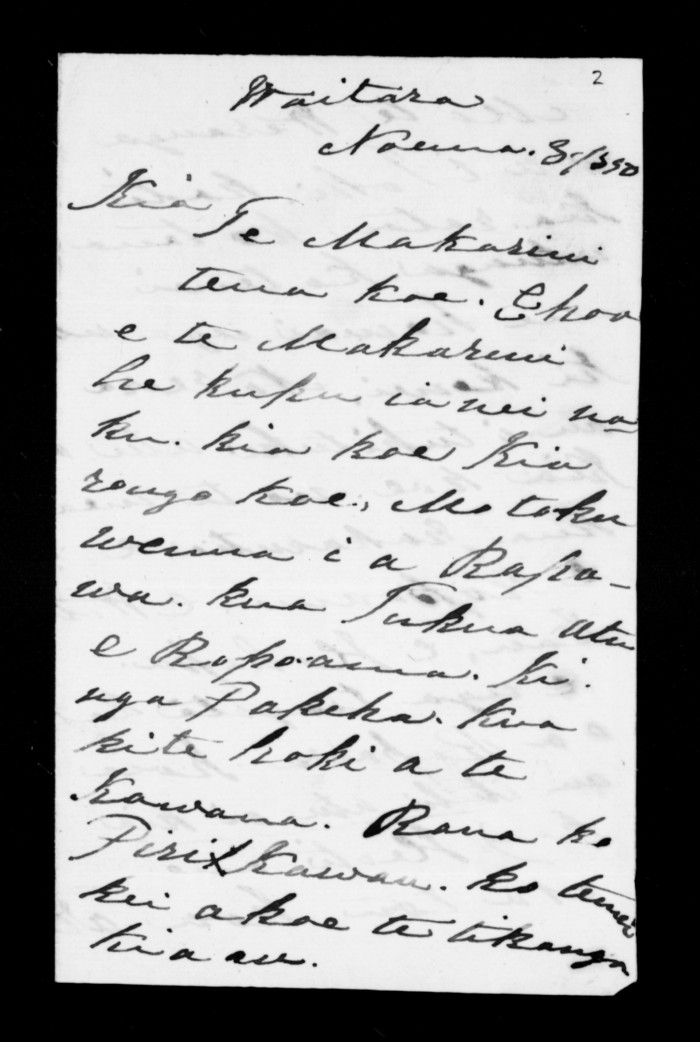 2
Waitara
Noema. 3/
Kia
Te Makarini
tena koe. E hoa
e te Makarini
he kupu ia nei na
ku. kia koe Kia
rongo koe, Mo toku
wenua i a Rapa-
wa. kua Tukua atu
e Ropoama. Ki.
nga Pakeha. Kua
kite hoki a te
Kawana. Raua ko
Piri Kawau. ko tenei
kei a koe te tikanga
kia au.